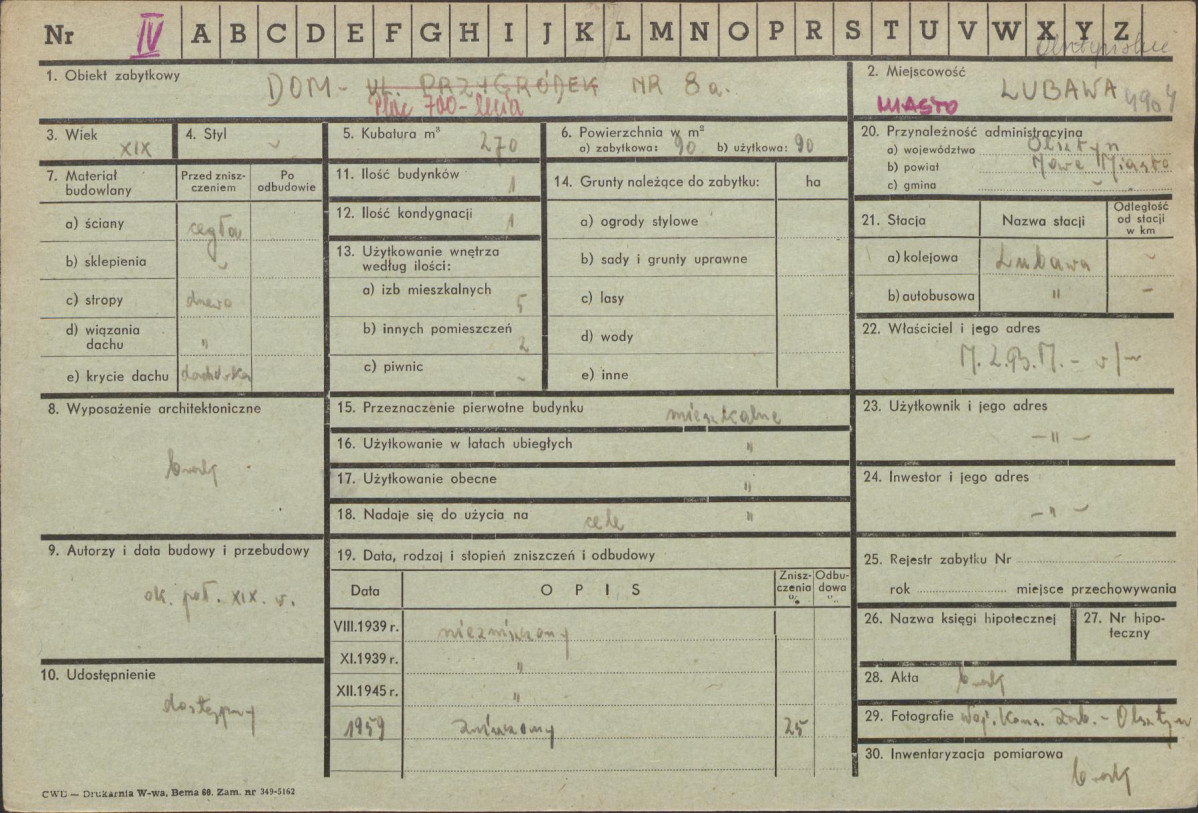 Nr IV A B C D E F G H I J K L M N O P R S T U V W X Y Z
1. Obiekt zabytkowy DOM - ul. PRZYGRÓDEK NR 8a.
Plac 700-lecia
2. Miejscowość LUBAWA
MIASTO
3. Wiek XIX
4. Styl -
5. Kubatura m³ 270
6. Powierzchnia w m²
a) zabytkowa: 90 b) użytkowa: 90
20. Przynależność administracyjna
a) województwo Olsztyn
b) powiat Nowe Miasto
c) gmina -
7. Materiał budowlany
Przed zniszczeniem
Po odbudowie
a) ściany cegła
b) sklepienia -
c) stropy drewno
d) wiązania dachu "
e) krycie dachu dachówka
11. Ilość budynków 1
12. Ilość kondygnacji 1
13. Użytkowanie wnętrza
według ilości:
a) izb mieszkalnych 5
b) innych pomieszczeń 2
c) piwnic -
14. Grunty należące do zabytku: ha
a) ogrody stylowe
b) sady i grunty uprawne
c) lasy
d) wody
e) inne
21. Stacja Nazwa stacji Odległość od stacji w km
a) kolejowa Lubawa -
b) autobusowa " -
22. Właściciel i jego adres
8. Wyposażenie architektoniczne
brak
15. Przeznaczenie pierwotne budynku mieszkalne
16. Użytkowanie w latach ubiegłych "
17. Użytkowanie obecne "
18. Nadaje się do użycia na cele "
23. Użytkownik i jego adres
- " -
24. Inwestor i jego adres
- " -
9. Autorzy i data budowy i przebudowy
ok. poł. XIX. w.
10. Udostępnienie
dostępny
19. Data, rodzaj i stopień zniszczeń i odbudowy
Data OPIS Zniszczenia % Odbudowa %
VIII.1939 r. niezniszczony
XI.1939 r. "
XII.1945 r. "
1959 zniszczony 25
25. Rejestr zabytku Nr
rok miejsce przechowywania
26. Nazwa księgi hipotecznej
27. Nr hipoteczny
28. Akta brak
29. Fotografie Woj. Kons. Zab. - Olsztyn
30. Inwentaryzacja pomiarowa
brak
CWD — Drukarnia W-wa, Bema 60. Zam. nr 349-5162